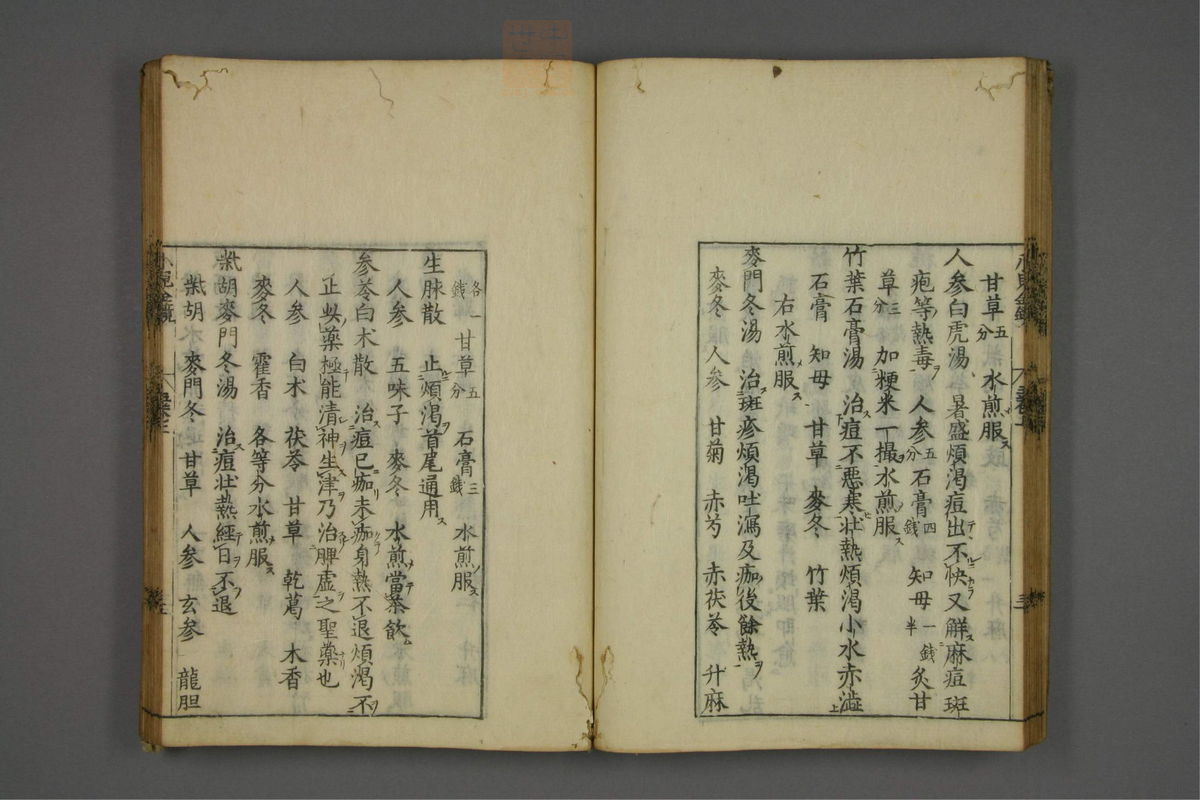 甘草五分 水煎服ス
人参白虎湯 暑盛煩渇痘出不快又解麻痘斑
疱等熱毒 人参五分 石膏四錢 知母一錢半 炙甘
草三分 加粳米一撮水煎服ス
竹葉石膏湯 治痘不悪寒壮熱煩渇小水赤澁
石膏 知母 甘草 麥冬 竹葉
右水煎服ス
麥門冬湯 治斑疹煩渇吐瀉及痂後餘熱
麥冬 人参 甘菊 赤芍 赤茯苓 升麻
各一錢 甘草五分 石膏三錢 水煎服ス
生脉散 止煩渇首尾通用ス
人参 五味子 麥冬 水煎當茶飲
参苓白术散 治痘已痂未痂身熱不退煩渇不
正此藥極能清神生津乃治脾虚之聖藥也
人参 白术 茯苓 甘草 乾葛 木香
麥冬 霍香 各等分水煎服ス
柴胡麥門冬湯 治痘壮熱經日不退
柴胡 麥門冬 甘草 人参 玄参 龍胆